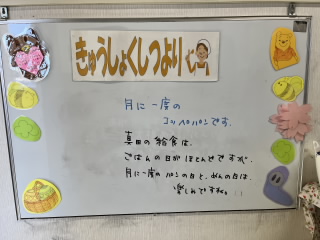 きゅうしょくしつより
月に一度の
コッペパンです。
真田の給食は、
ごはんの日がほとんどですが、
月に一度のパンの日と、めんの日は、
楽しみですね。